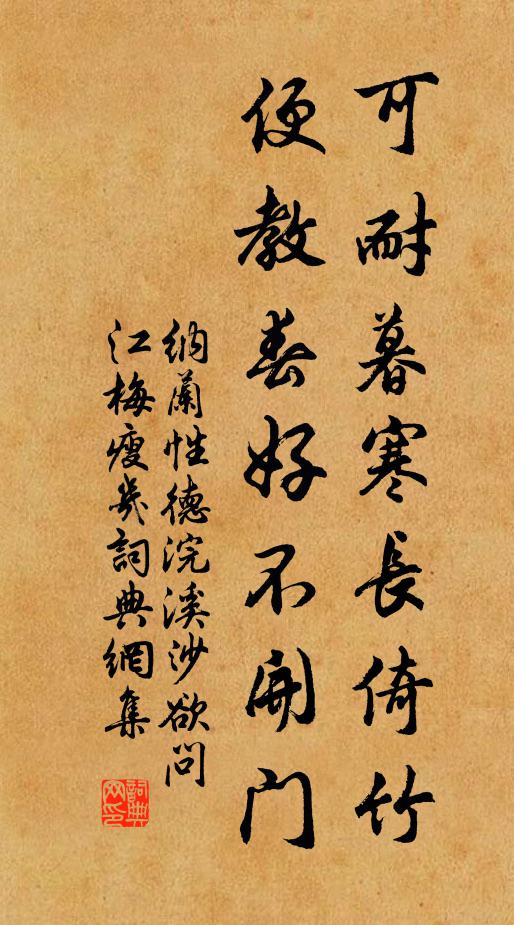 可耐暮寒長倚竹
便教春好不開門
納蘭性德浣溪沙欲問
江梅瘦幾詞典網集
詞典
网印